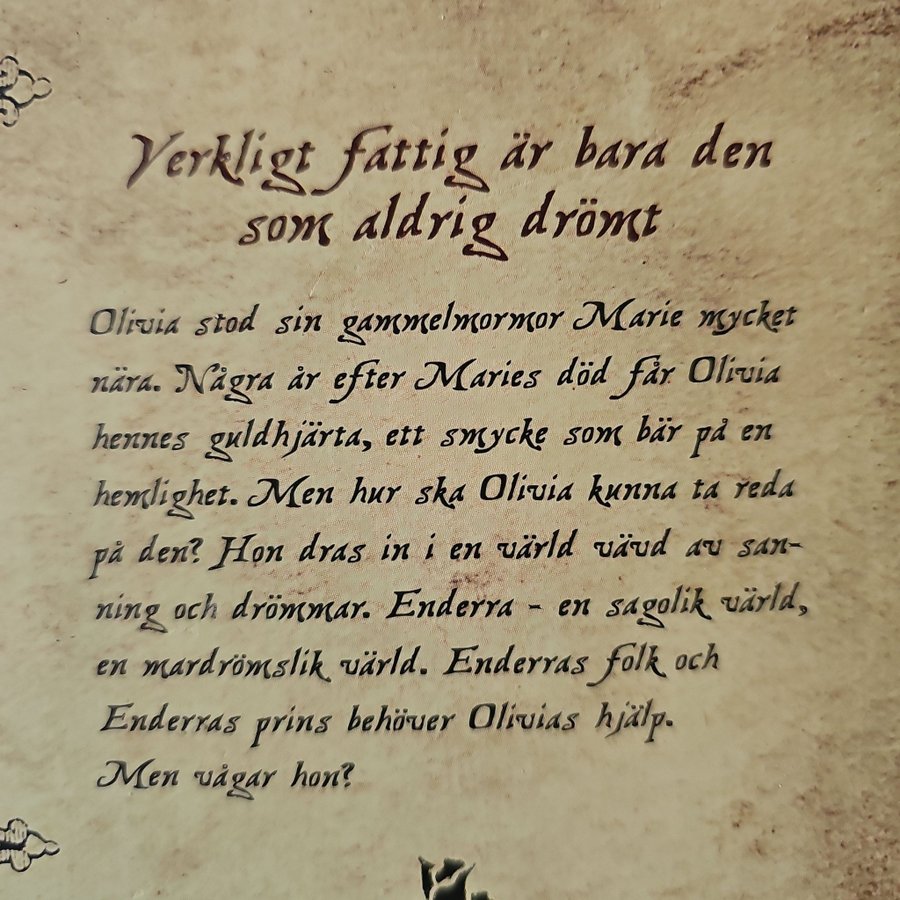 Verkligt fattig är bara den
som aldrig drömt
Olivia stod sin gammelmormor Marie mycket
nära. Några år efter Maries död får Olivia
hennes guldhjärta, ett smycke som bär på en
hemlighet. Men hur ska Olivia kunna ta reda
på den? Hon dras in i en värld vävd av san-
ning och drömmar. Enderra - en sagolik värld,
en mardrömslik värld. Enderras folk och
Enderras prins behöver Olivias hjälp.
Men vågar hon?